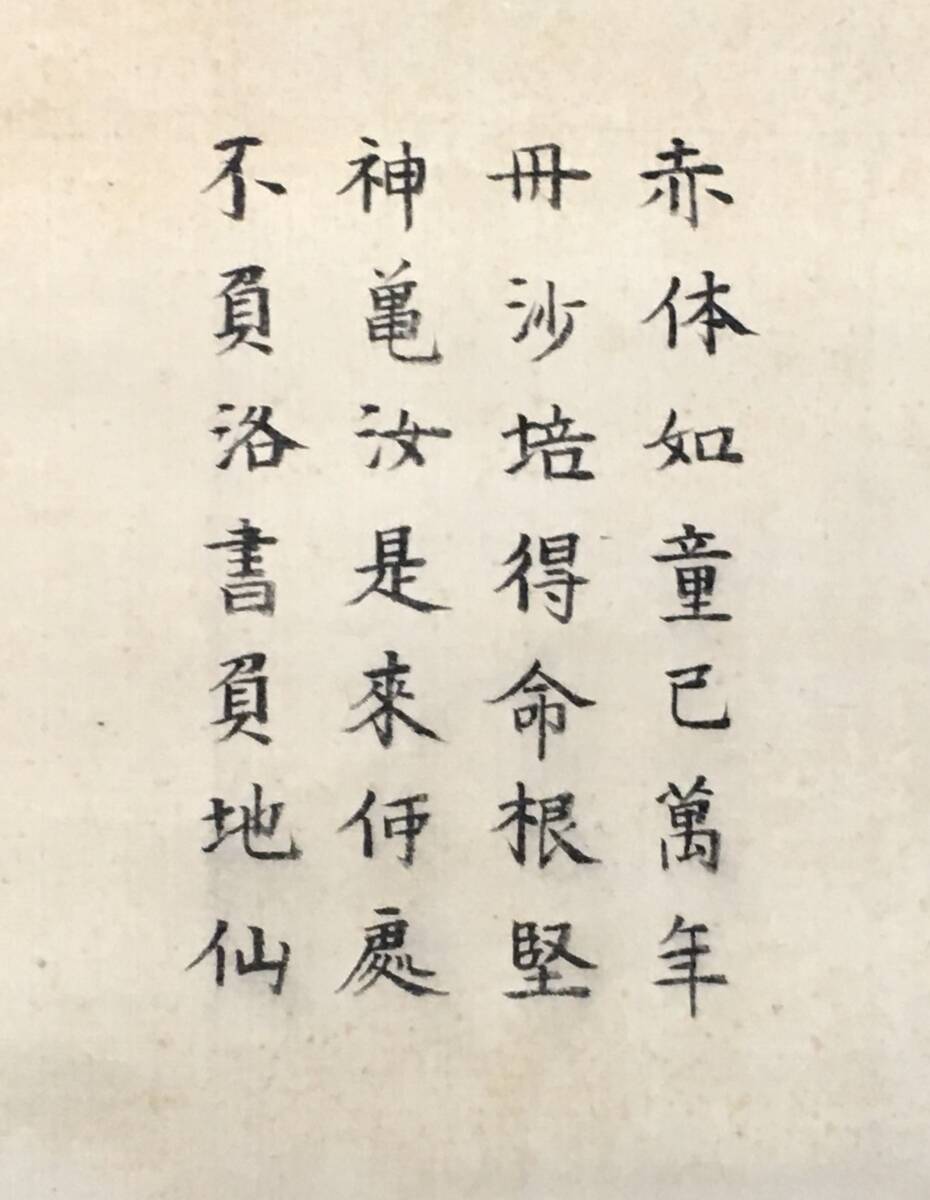 赤体如童已萬年
丹沙培得命根堅
神亀汝是來何處
不負洛書負地仙